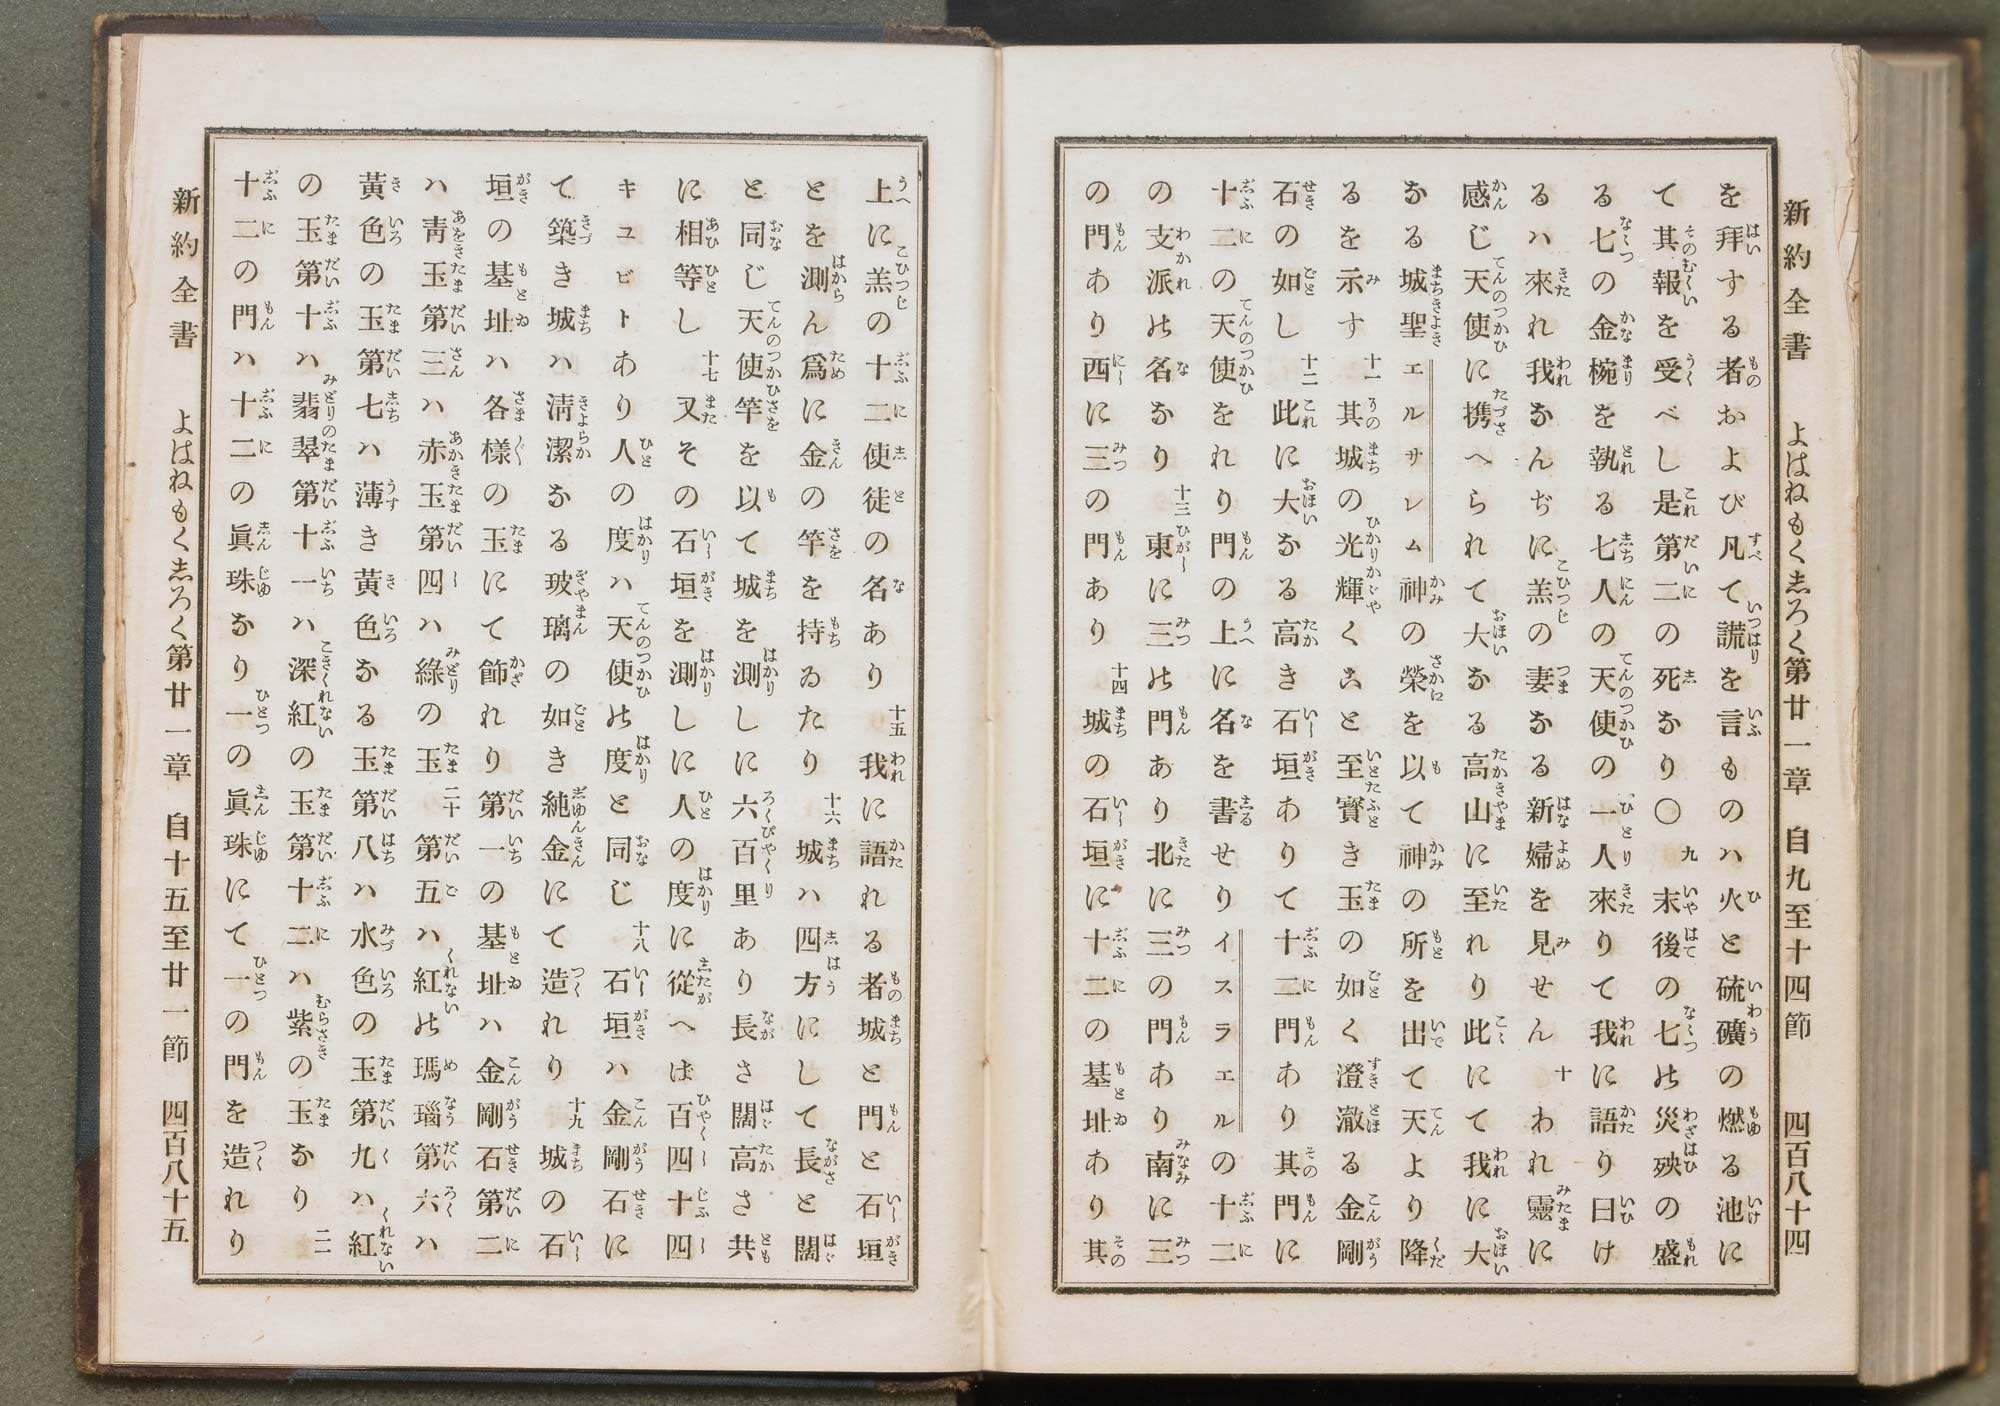 新約全書 よはねもくしろく第廿一章 自九至十四節 四百八十四
を拜する者および凡て謊を言ものハ火と硫礦の燃る池に
て其報を受べし是第二の死なり〇九末後の七の災殃の盛
る七の金椀を執る七人の天使の一人來りて我に語り曰け
るハ來れ我なんぢに羔の妻なる新婦を見せん十われ靈に
感じ天使に携へられて大なる高山に至れり此にて我に大
なる城聖エルサレム神の榮を以て神の所を出て天より降
るを示す十一其城の光輝くこと至寳き玉の如く澄澈る金剛
石の如し十二此に大なる高き石垣ありて十二門あり其門に
十二の天使をれり門の上に名を書せりイスラエルの十二
の支派の名なり十三東に三の門あり北に三の門あり南に三
の門あり西に三の門あり十四城の石垣に十二の基址あり其
上に羔の十二使徒の名あり十五我に語れる者城と門と石垣
とを測ん爲に金の竿を持ゐたり十六城ハ四方にして長と闊
と同じ天使竿を以て城を測しに六百里あり長さ闊高さ共
に相等し十七又その石垣を測しに人の度に從へば百四十四
キユビトあり人の度ハ天使の度と同じ十八石垣ハ金剛石に
て築き城ハ淸潔なる玻璃の如き純金にて造れり十九城の石
垣の基址ハ各樣の玉にて飾れり第一の基址ハ金剛石第二
ハ靑玉第三ハ赤玉第四ハ綠の玉二十第五ハ紅の瑪瑙第六ハ
黃色の玉第七ハ薄き黃色なる玉第八ハ水色の玉第九ハ紅
の玉第十ハ翡翠第十一ハ深紅の玉第十二ハ紫の玉なり二一
十二の門ハ十二の眞珠なり一の眞珠にて一の門を造れり
新約全書 よはねもくしろく第廿一章 自十五至廿一節 四百八十五